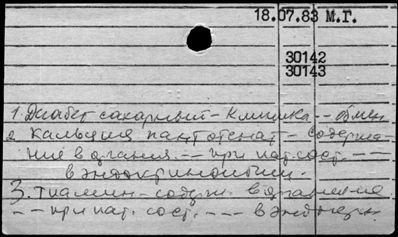 18.07.83 М.Г.
30142
30143
1. Диабет сахарный - клиника -- обмен
2. Кальция пантотенат - содержа-
ние в органия. -- при пат. сост. ---
в эндокринологии.
3. Тиамин - содерж. в организме
-- при пат. сост. --- в эндокрин.